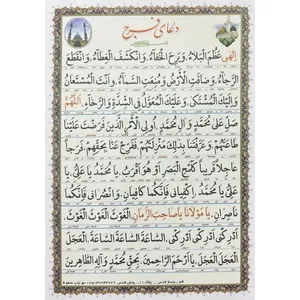 دعای فرج
اِلٰهی عَظُمَ الْبَلاٰءُ، وَبَرِحَ الْخَفاٰءُ، وَانْکَشَفَ الْغِطاٰءُ، وَانْقَطَعَ
الرَّجاٰءُ، وَضاٰقَتِ الْاَرْضُ وَمُنِعَتِ السَّماٰءُ، وَاَنْتَ الْمُسْتَعاٰنُ
وَاِلَیْکَ الْمُشْتَکیٰ، وَعَلَیْکَ الْمُعَوَّلُ فِی الشِّدَّةِ وَالرَّخاٰءِ. اَللّٰهُمَّ
صَلِّ عَلیٰ مُحَمَّدٍ وَآلِ مُحَمَّدٍ، اُولِی الْاَمْرِ الَّذینَ فَرَضْتَ عَلَیْناٰ
طاٰعَتَهُمْ، وَعَرَّفْتَناٰ بِذٰلِکَ مَنْزِلَتَهُمْ، فَفَرِّجْ عَنّاٰ بِحَقِّهِمْ، فَرَجاً
عاٰجِلاً قَریباً کَلَمْحِ الْبَصَرِ، اَوْ هُوَ اَقْرَبُ، یاٰ مُحَمَّدُ یاٰ عَلِیُّ، یاٰ
عَلِیُّ یاٰ مُحَمَّدُ، اِکْفِیاٰنی فَاِنَّکُماٰ کاٰفِیاٰنِ، وَانْصُراٰنی فَاِنَّکُماٰ
ناٰصِراٰنِ. یاٰ مَوْلاٰناٰ یاٰ صاٰحِبَ الزَّماٰنِ، الْغَوْثَ الْغَوْثَ الْغَوْثَ
اَدْرِکْنی اَدْرِکْنی اَدْرِکْنی، السّاٰعَةَ السّاٰعَةَ السّاٰعَةَ، الْعَجَلَ الْعَجَلَ
الْعَجَلَ، یاٰ اَرْحَمَ الرّاٰحِمینَ، بِحَقِّ مُحَمَّدٍ وَآلِهِ الطّاٰهِرینَ